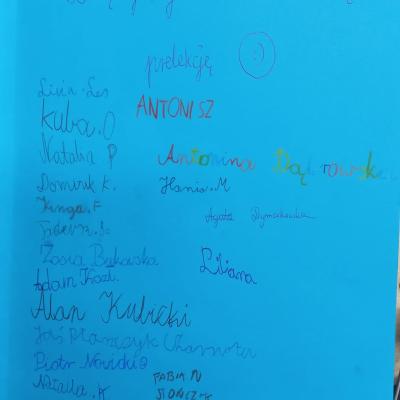 prelekcję :)
Livia Les
ANTONI SZ
Kuba.O
Natalia P
Antonina Dąbrowska
Dominik K.
Hania.M
Kinga.F
Agata
Zosia Bukowska
Liliana
Adam Kozł.
Alan Kubicki
Jaś Ptaszczyk Czarnota
Piotr Nowicki
Natalia.K
FABIAN